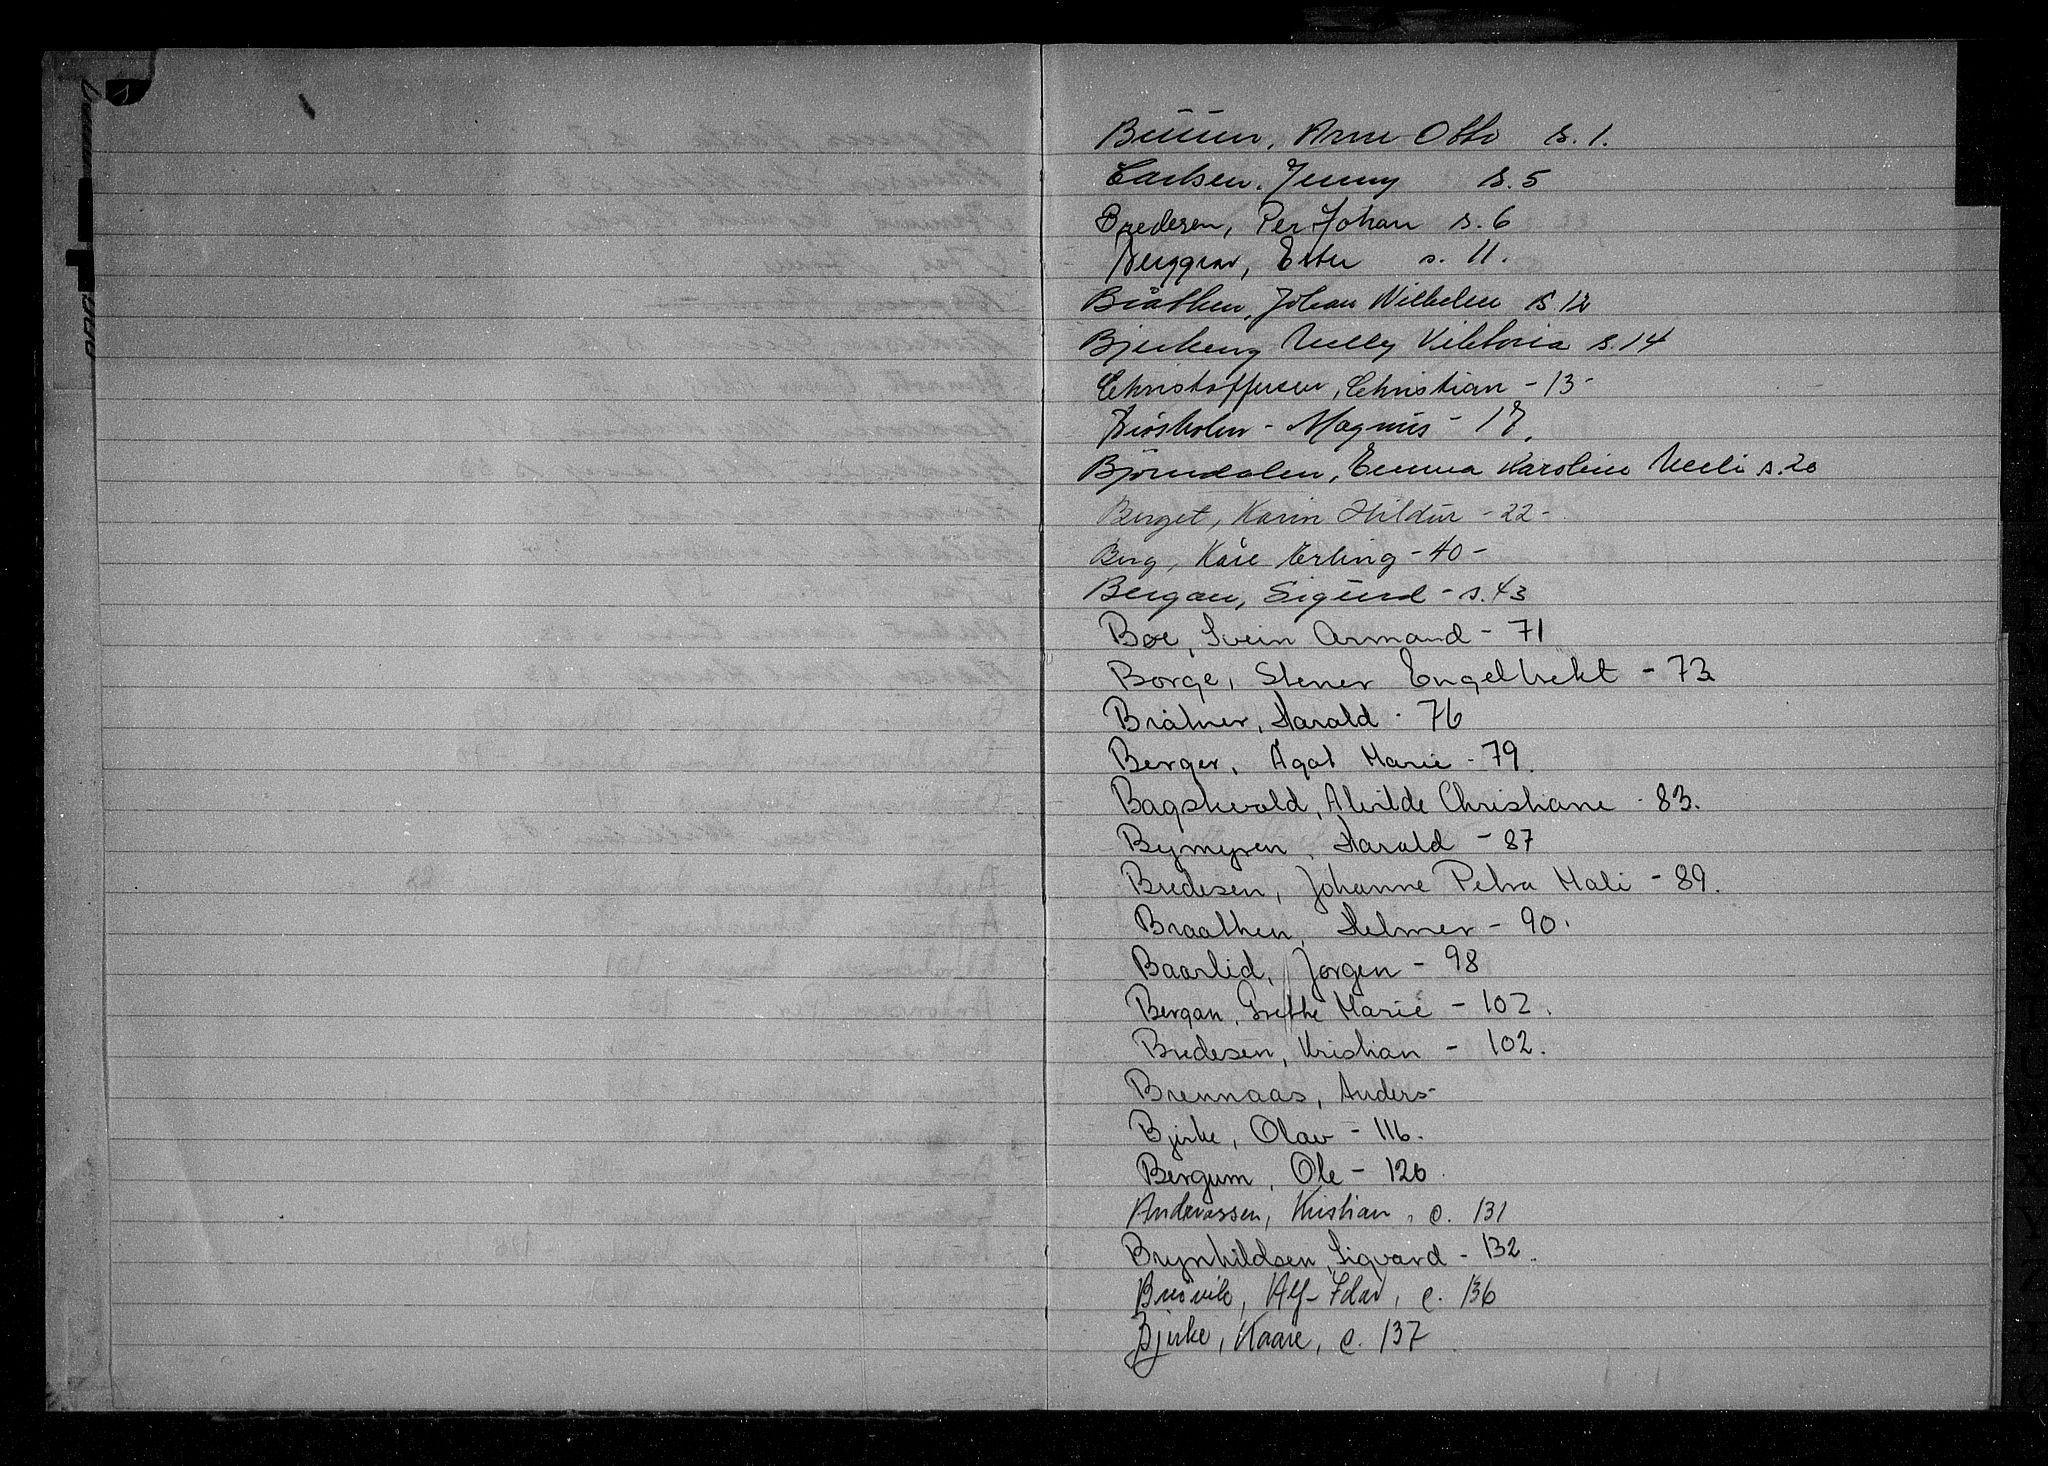 Arne Otto s. 1.
Carlsen, Jenny s. 5
Bredesen, Per Johan s. 6
Berggrav, Ester s. 11.
Bråthen, Johan Wilhelm s. 12
Bjerkeng Nelly Viktoria s. 14
Christoffersen, Christian - 13 -
Magnus - 17.
Björndalen, Emma Karoline s. 20
Berget, Karin Hildur - 22 -
Berg, Kåre Erling - 40 -
Bergan, Sigurd - s. 43
Bøe, Svein Armand - 71
Borge, Stener Engelbrekt - 73
Bråtner, Harald - 76
Berger, Agot Marie - 79.
Bagstevold, Alvilde Christiane - 83.
Bymyren, Harald - 87
Bredesen, Johanne Petra Mali - 89.
Braathen, Helmer - 90.
Baarlid, Jørgen - 98
Bergan, Grethe Marie - 102.
Bredesen, Kristian - 102.
Brennaas, Anders -
Bjerke, Olav - 116.
Bergum, Ole - 126.
Andreassen, Kristian, s. 131
Brynhildsen, Sigvard - 132.
Alf-Idar, s. 136
Bjerke, Kaare, s. 137